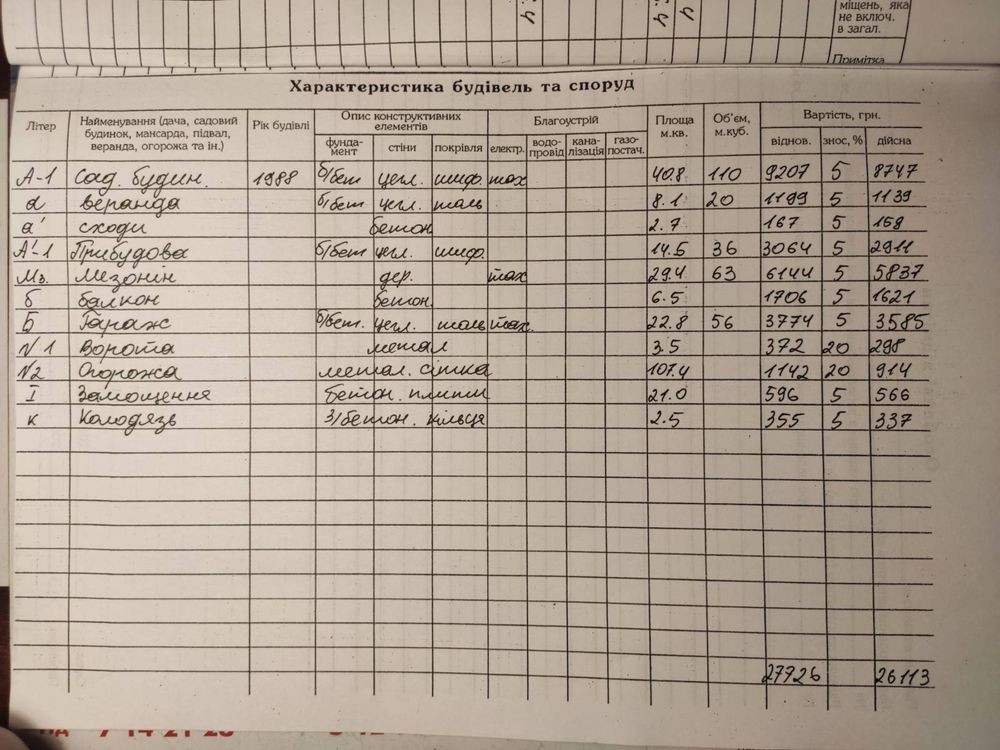 5.4 5.4 4
міщень, яка
не включ.
в загал.
Примітка
Характеристика будівель та споруд
Літер Найменування (дача, садовий будинок, мансарда, підвал, веранда, огорожа та ін.) Рік будівлі Опис конструктивних елементів Благоустрій Площа м.кв. Об'єм, м.куб. Вартість, грн.
фунда-мент стіни покрівля електр. водо-провід кана-лізація газо-постач. віднов. знос, % дійсна
А-1 Сад. будин. 1988 б/бет цегл. шиф. 40.8 110 9207 5 8747
а веранда б/бет цегл. толь 8.1 20 1199 5 1139
а' сходи бетон 2.7 167 5 158
А'-1 Прибудова б/бет цегл. шиф. 14.5 36 3064 5 2911
Мз. Мезонін дер. 29.4 63 6144 5 5837
б балкон бетон. 6.5 1706 5 1621
Б Гараж б/бет. цегл. толь 22.8 56 3774 5 3585
N 1 Ворота метал 3.5 372 20 298
N2 Огорожа метал. сітка 107.4 1142 20 914
I Замощення бетон. плити 21.0 596 5 566
к Колодязь з/бетон. кільця 2.5 355 5 337
27726 26113